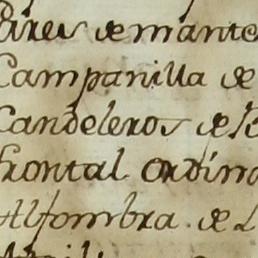 Pares de mante
Campanilla de
Candeleros de
frontal ordina
Alfombra de L